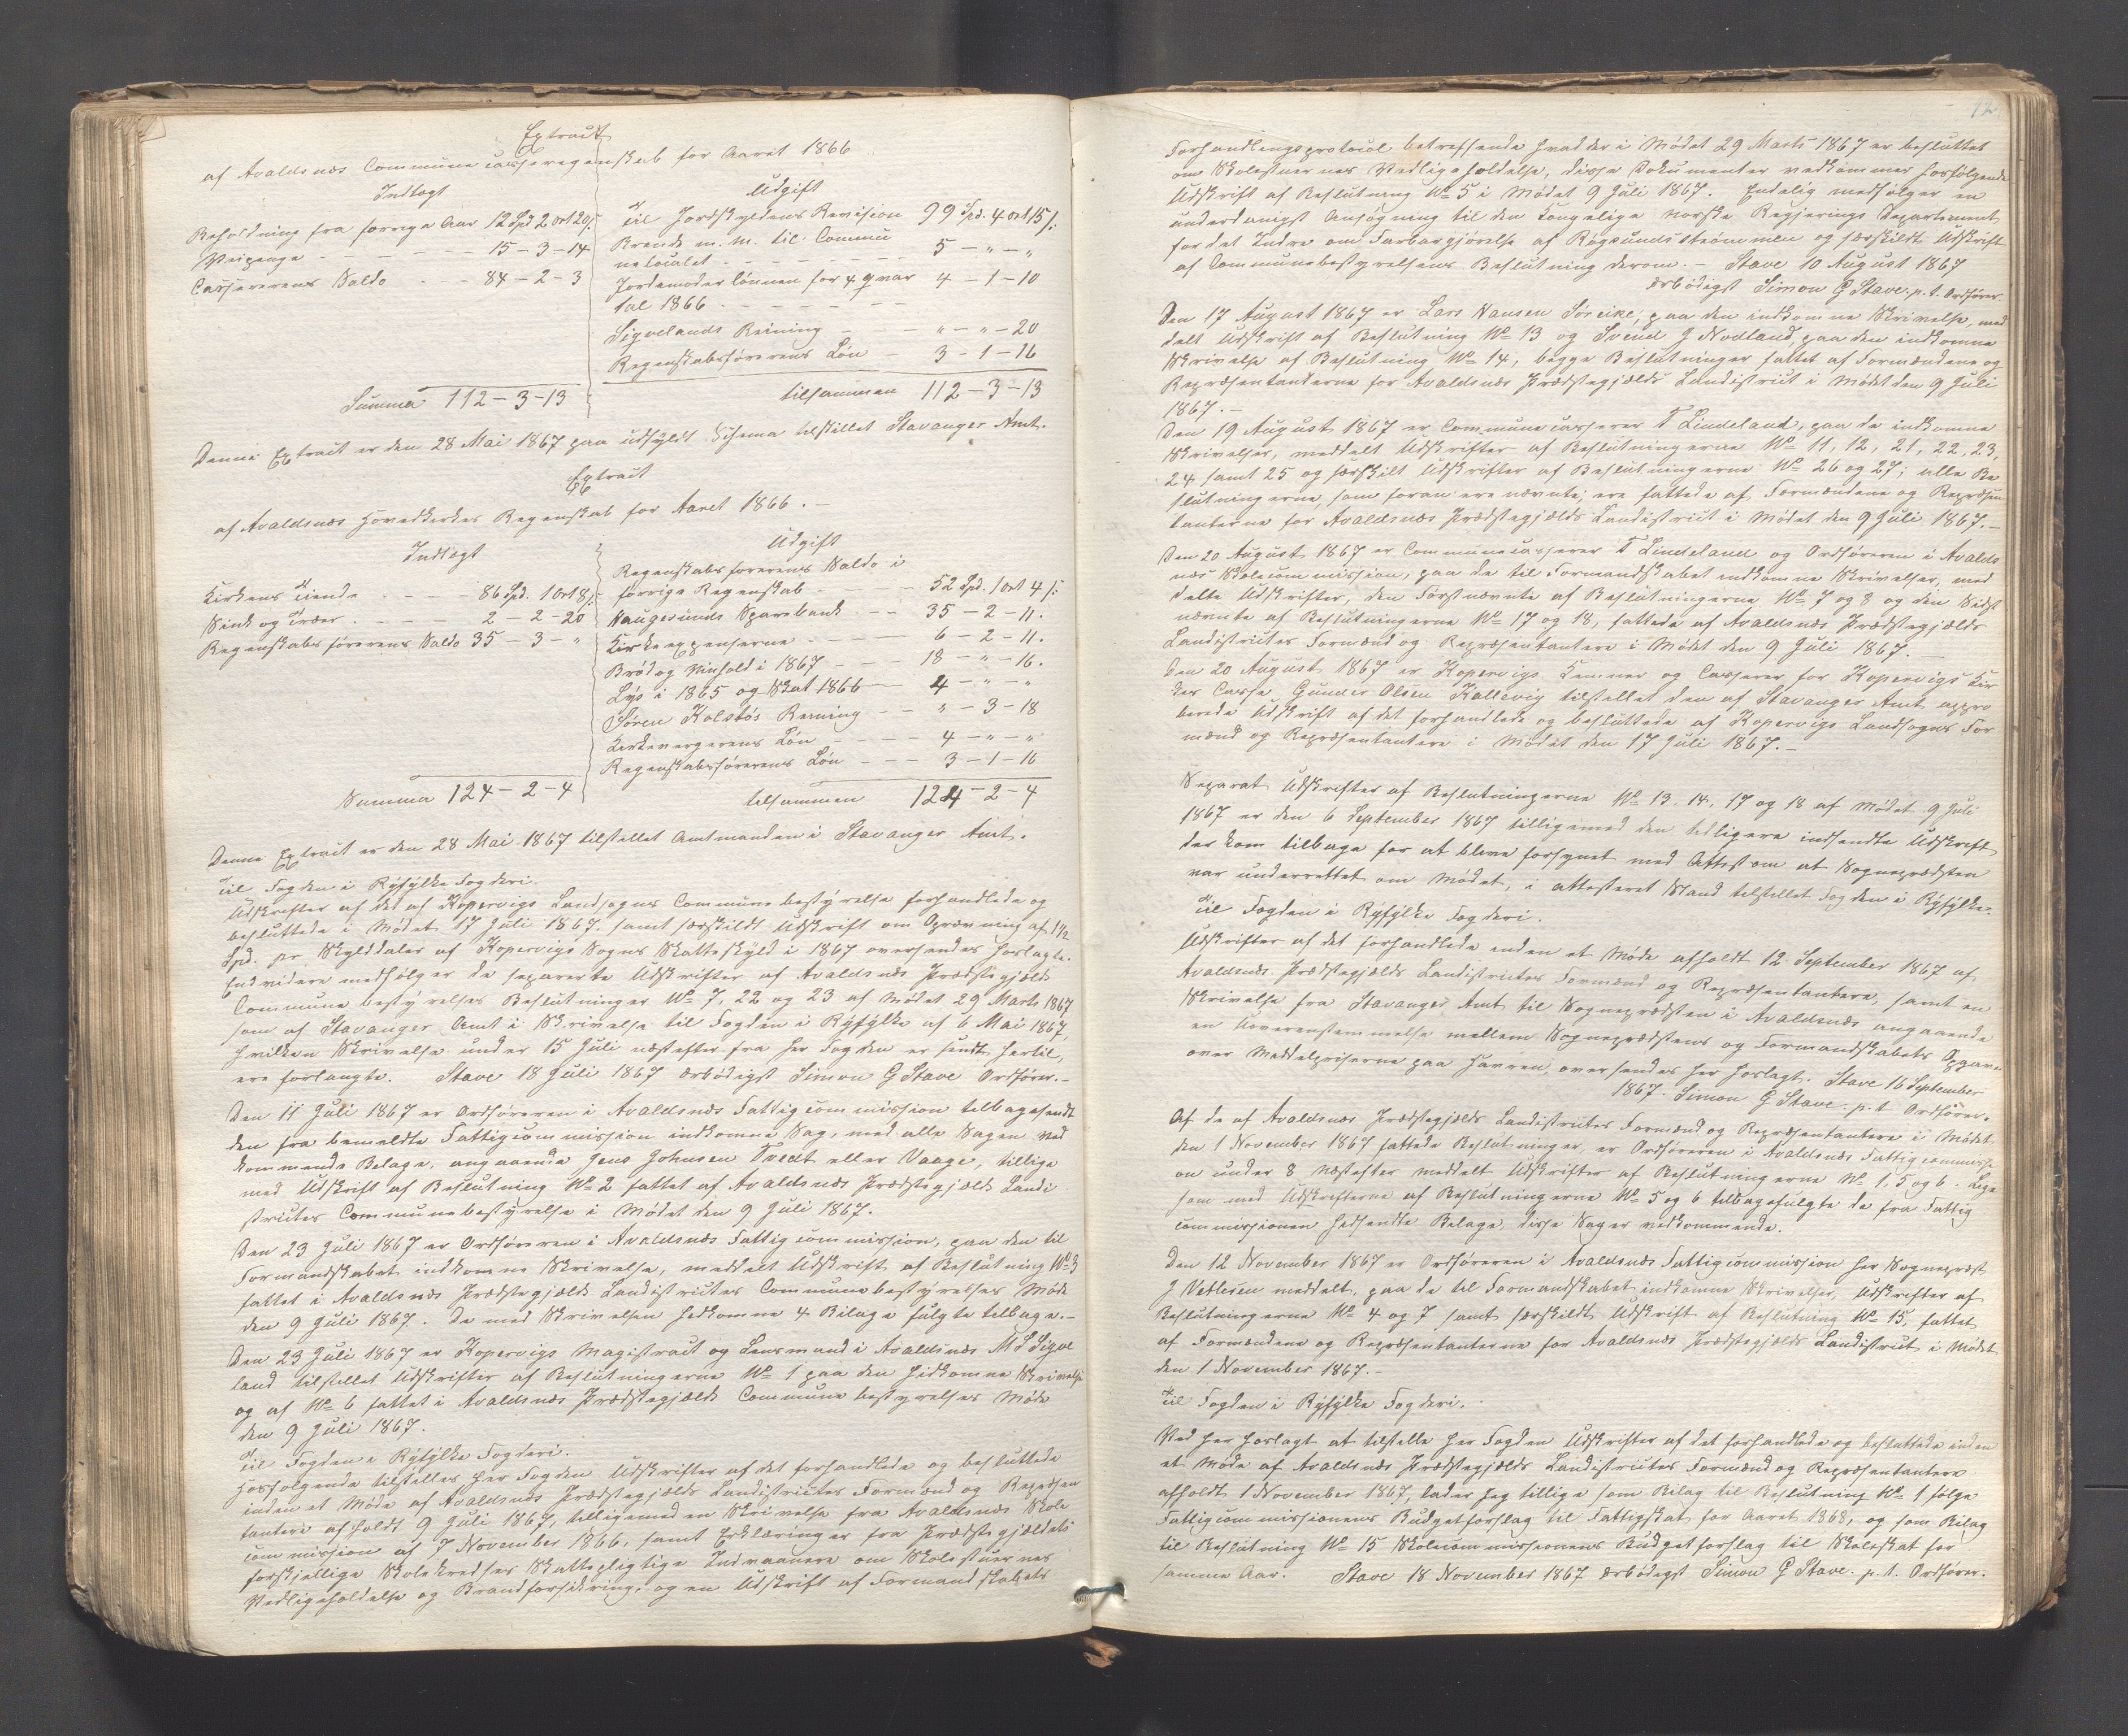 Extract
af Avaldsnæs Communecasseregenskab for Aaret 1866
Indtægt
Beholdning fra forrige Aar 12 Spd 2 ort 20 s.
Veipenge - - - - - 15 - 3 - 14
Cassererens Saldo - - - 84 - 2 - 3
Summa 112 - 3 - 13
Udgift
Til Jordskyldens Revision 99 Spd. 4 ort 15 s:
Brende m. m. til Commu
nelocalet - - - - - 5 - " - "
Jordemoderlønnen for 4 qvar 4 - 1 - 10
tal 1866 - - - - -
Sigvelands Reining - - " - " - 20
Regenskabsførerens Løn - 3 - 1 - 16
tilsammen 112 - 3 - 13
Denne Extract er den 28 Mai 1867 paa udfyldt Schema tilstillet Stavanger Amt.
Extract
af Avaldsnæs Hovedkirkes Regenskab for Aaret 1866. -
Indtægt
Kirkens Tiende - - - - 86 Spd. 1 Ort 8 s
Vink og Træer - - - - 2 - 2 - 20
Regenskabsførerens Saldo 35 - 3 - "
Summa 124 - 2 - 4
Udgift
Regenskabsførerens Saldo i
forrige Regenskab - - - 52 Spd. 1 ort 4 s:
Haugesunds Sparebank - - 35 - 2 - 11.
Kirkeexpenserne - - - - 6 - 2 - 11.
Brød og Vinhold i 1867 - - - 18 - " - 16.
Lys i 1865 og Skat 1866 - 4 - " - "
Søren Kolstøs Reining - - " - 3 - 18
Kirkevergerens Løn - - - 4 - " - "
Regenskabsførerens Løn - - - 3 - 1 - 16
tilsammen 124 - 2 - 4
Denne Extract er den 28 Mai 1867 tilstillet Amtmanden i Stavanger Amt.
Til Fogden i Ryfylke Fogderi.
Udskrifter af det af Kopervigs Landsogns Communebestyrelse forhandlede og
besluttede i Mødet 17 Juli 1867. samt særskildt Udskrift om Oprævning af 1 1/2
Spd. pr Skylddaler af Kopervigs Sogns Matteskyld i 1867 oversendes forlagte.
Endvidere medfølger de separerte Udskrifter af Avaldsnæs Prædstegjelds
Communebestyrelses Beslutninger No 7, 22 og 23 af Mødet 29 Marts 1867
som af Stavanger Amt i Skrivelse til Fogden i Ryfylke af 6 Mai 1867,
hvilken Skrivelse under 15 Juli næstefter fra Hr Fogden er sendt hertil,
ere forlangte. Stave 18 Juli 1867 ærbødigst Simon G Stave Ordfører. -
Den 11 Juli 1867 er Ordføreren i Avaldsnæs Fattigcommission tilbagesendt
den fra bemeldte Fattigcommission indkomne Sag, med alle Sagen ved
kommende Belage, angaaende Jens Johnsen Tvedt eller Vaage, tillige
med Udskrift af Beslutning No 2 fattet af Avaldsnæs Prædstegjælds Landi
stricter Communebestyrelse i Mødet den 9 Juli 1867.
Den 23 Juli 1867 er Ordføreren i Avaldsnæs Fattigcommission, paa den til
Formandskabet indkomne Skrivelse, meddelt Udskrift af Beslutning No 3
fattet i Avaldsnæs Prædstegjælds Landistricter Communebestyrelses Møde
den 9 Juli 1867. De med Skrivelsen hedkomne 4 Bilage fulgte tilbage. -
Den 23 Juli 1867 er Kopervigs Magistract og Lensmand i Avaldsnæs M L Sigve
land tilstillet Udskrifter af Beslutningerne No 1 paa den hidkomne Skrivelse
og af No 6 fattet i Avaldsnæs Prædstegjælds Communebestyrelses Møde
den 9 Juli 1867.
Til Fogden i Ryfylke Fogderi.
Hosfølgende tilstilles Her Fogden Udskrifter af det forhandlede og besluttede
inden et Møde af Avaldsnæs Prædstegjælds Landistricter Formænd og Repræsen
tantere afholdt 9 Juli 1867, tilligemed en Skrivelse fra Avaldsnæs Skole
commission af 7 November 1866, samt Erklæringer fra Prædstegjældets
forskjellige Skolekredses Skattepligtige Indvaanere om Skolestuernes
Vedligeholdelse og Brandforsikring. og en Udskrift af Formandskabets
12
Forhandlingsprotocol betreffende hvad der i Mødet 29 Marts 1867 er besluttet
om Skolestuernes Vedligeholdelse, disse Dokumenter vedkommer hosfølgende
Udskrift af Beslutning No 5 i Mødet 9 Juli 1867. Endelig medfølger en
underdanigst Ansøgning til den Kongelige norske Regjerings Departement
for det Indre om Farbargjørelse af Røgsundstrømmen og særskildt Udskrift
af Communebestyrelsens Beslutning derom. - Stave 10 August 1867
ærbødigst Simon G Stave. p. t. Ordfører
Den 17 August 1867 er Lars Hansen Søreike, paa den indkomne Skrivelse, med
delt Udskrift af Beslutning No 13 og Svend J Nodland, paa den indkomne
Skrivelse af Beslutning No 14, begge Beslutninger fattet af Formændene og
Repræsentanterne for Avaldsnæs Prædstegjælds Landistrict i Mødet den 9 Juli
1867. -
Den 19 August 1867 er Communecasserer T Lindeland, paa de indkomne
Skrivelser, meddelt Udskrifter af Beslutningerne No 11, 12, 21, 22, 23,
24 samt 25 og særskilt Udskrifter af Beslutningerne No 26 og 27; alle Be
slutningerne, som foran ere nævnte; ere fattede af Formændene og Repræsen
tanterne for Avaldsnæs Prædstegjælds Landistrict i Mødet den 9 Juli 1867. -
Den 20 August 1867 er Communecasserer T Lindeland og Ordføreren i Avalds
næs Skolecommission, paa de til Formandskabet indkomne Skrivelser, med
delte Udskrifter, den Førstnævnte af Beslutningerne No 7 og 8 og den Sidst
nævnte af Beslutningerne No 17 og 18, fattede af Avaldsnæs Prædstegjælds
Landistricter Formænd og Repræsentantere i Mødet den 9 Juli 1867. -
Den 20 August 1867 er Kopervigs Kemner og Casserer for Kopervigs Kir
kes Casse Gunder Olsen Kallevig tilstillet den af Stavanger Amt appro
berede Udskrift af det forhandlede og besluttede af Kopervigs Landsogns For
mænd og Repræsentantere i Mødet den 17 Juli 1867. -
Separat Udskrifter af Beslutningerne No 13. 14. 17 og 18 af Mødet 9 Juli
1867 er den 6 September 1867 tilligemed den tidligere indsendte Udskrift
der kom tilbage for at blive forsynet med Attest om at Sogneprædsten
var underrettet om Mødet, i attesteret Stand tilstillet Fogden i Ryfylke.
Til Fogden i Ryfylke Fogderi.
Udskrifter af det forhandlede inden et Møde afholdt 12 September 1867 af
Avaldsnæs Prædstegjælds Landistricter Formænd og Repræsentantere, samt en
Skrivelse fra Stavanger Amt til Sogneprædsten i Avaldsnæs angaaende
en Uoverenstemmelse mellem Sogneprædstens og Formandskabets Opgave
over Meddelpriserne paa Havren, oversendes her forlagt. Stave 16 September
1867. Simon G Stave. p. t. Ordfører.
Af de af Avaldsnæs Prædstegjælds Landistricter Formænd og Repræsentantere i Mødet
den 1 November 1867 fattede Beslutninger, er Ordføreren i Avaldsnæs Fattigcommissi
on under 8 næstefter meddelt Udskrifter af Beslutningerne No 1, 5 og 6. Lige
som med Udskrifterne af Beslutningerne No 5 og 6 tilbagefulgte de fra Fattig
commissionen hedsendte Belage, disse Sager vedkommende.
Den 12 November 1867 er Ordføreren i Avaldsnæs Fattigcommission Hr Sognepræst
J Vetlesen meddelt, paa de til Formandskabet indkomne Skrivelser, Udskrifter af
Beslutningerne No 4 og 7 samt særskildt Udskrift af Beslutning No 15, fattet
af Formændene og Repræsentanterne for Avaldsnæs Prædstegjælds Landistrict i Mødet
den 1 November 1867. -
Til Fogden i Ryfylke Fogderi.
Ved her forlagt at tilstelle Her Fogden Udskrifter af det forhandlede og besluttede inden
et Møde af Avaldsnæs Prædstegjælds Landistricter Formænd og Repræsentantere
afholdt 1 November 1867, lader jeg tillige som Bilag til Beslutning No 1 følge
Fattigcommissionens Budgetforslag til Fattigskat for Aaret 1868, og som Bilag
til Beslutning No 15 Skolecommissionens Budgetforslag til Skoleskat for
samme Aar. Stave 18 November 1867 ærbødigst Simon G Stave. p. t. Ordfører.